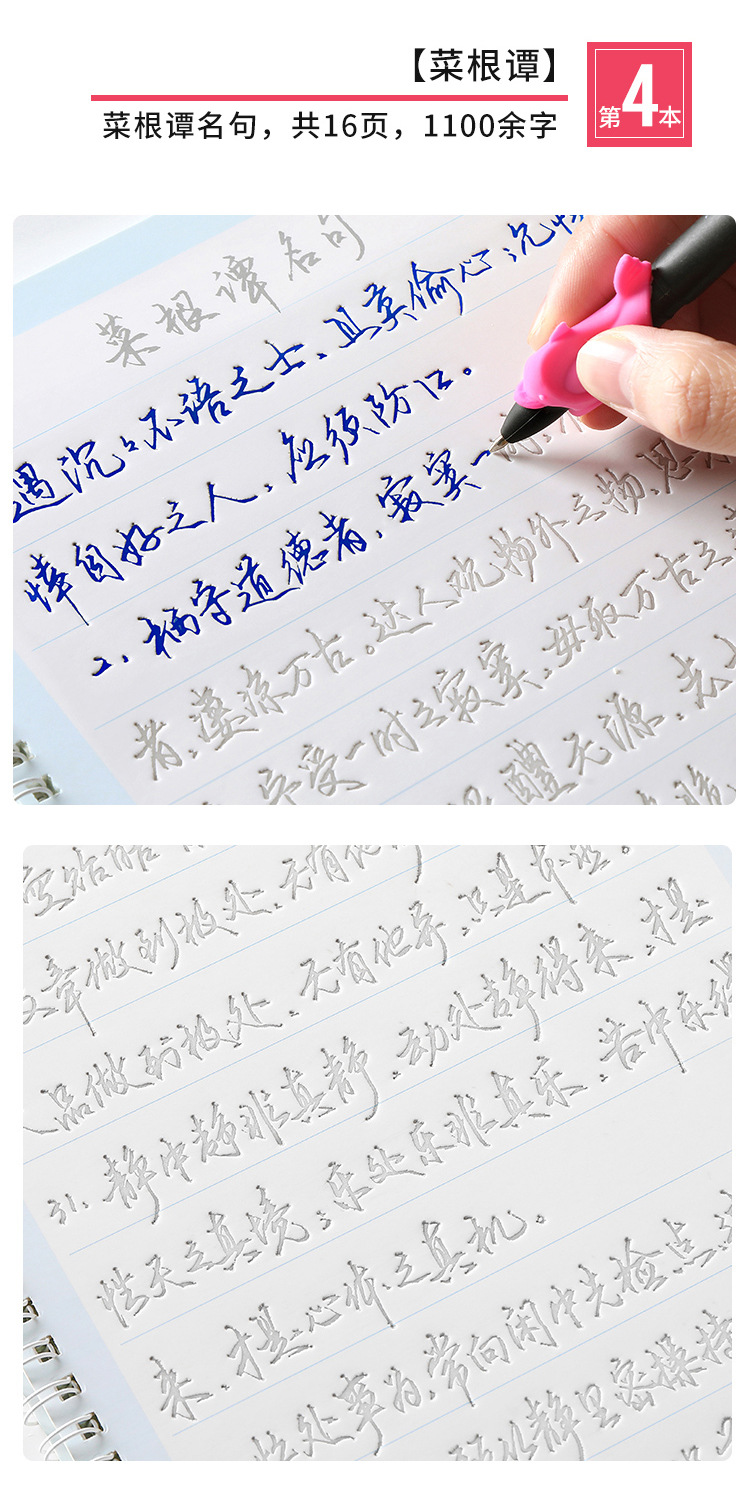 【菜根谭】
菜根谭名句，共16页，1100余字
第4本
菜根谭名句
遇沉沉不语之士、且莫输心；
悻自好之人，应须防口。
2、栖守道德者，寂寞一
者，凄凉万古。达人观物外之物，思
宁受一时之寂寞，毋取万古之
醴无源
文章做到极处，无有他
人品做到极处，无有他异，只是本然。
31、静中静非真静，动处静得来，才是
性天之真境；乐处乐非真乐，苦中乐得
来，才是心体之真机。
忙处事为，常向闲中先检点，
静里密操持